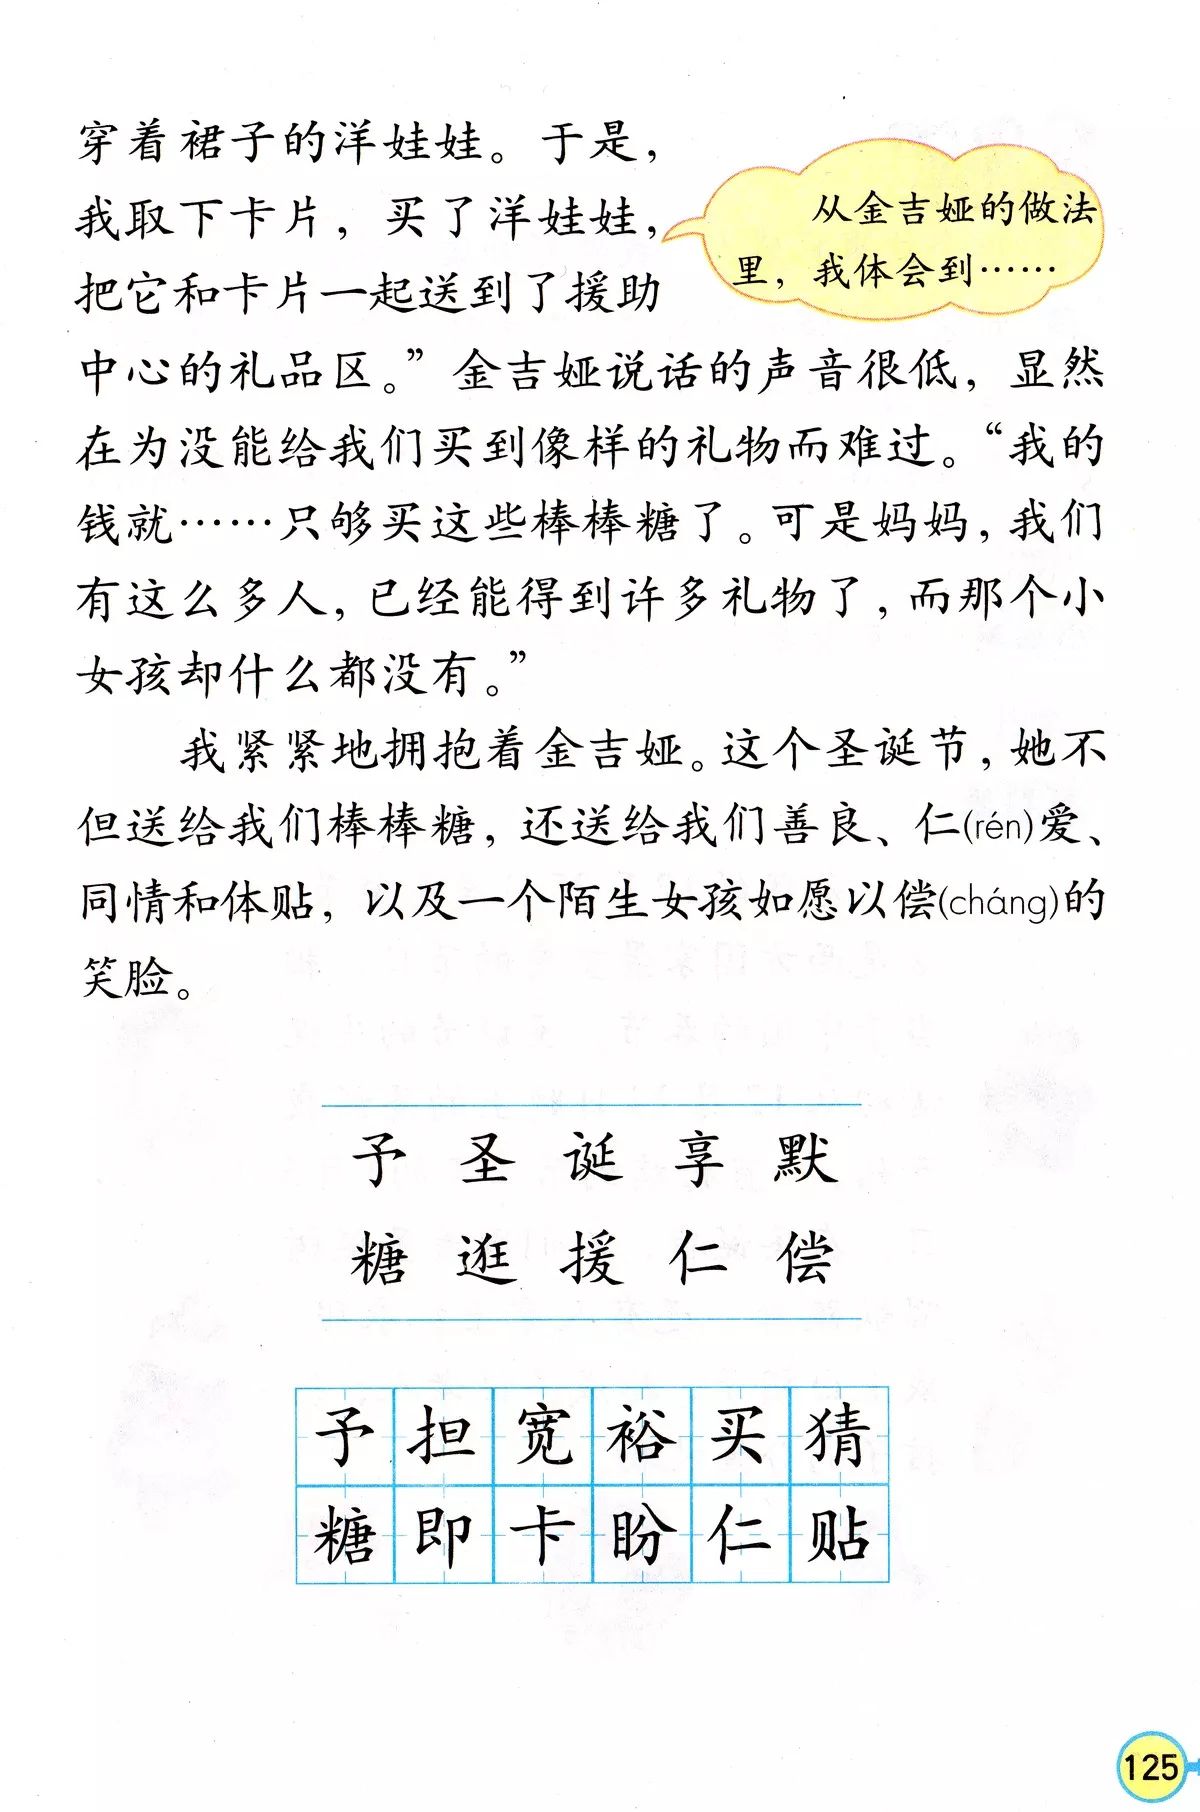 穿着裙子的洋娃娃。于是，
我取下卡片，买了洋娃娃，
把它和卡片一起送到了援助
从金吉娅的做法
里，我体会到……
中心的礼品区。”金吉娅说话的声音很低，显然
在为没能给我们买到像样的礼物而难过。“我的
钱就……只够买这些棒棒糖了。可是妈妈，我们
有这么多人，已经能得到许多礼物了，而那个小
女孩却什么都没有。”
我紧紧地拥抱着金吉娅。这个圣诞节，她不
但送给我们棒棒糖，还送给我们善良、仁(rén)爱、
同情和体贴，以及一个陌生女孩如愿以偿(cháng)的
笑脸。
予 圣 诞 享 默
糖 逛 援 仁 偿
予 担 宽 裕 买 猜
糖 即 卡 盼 仁 贴
125